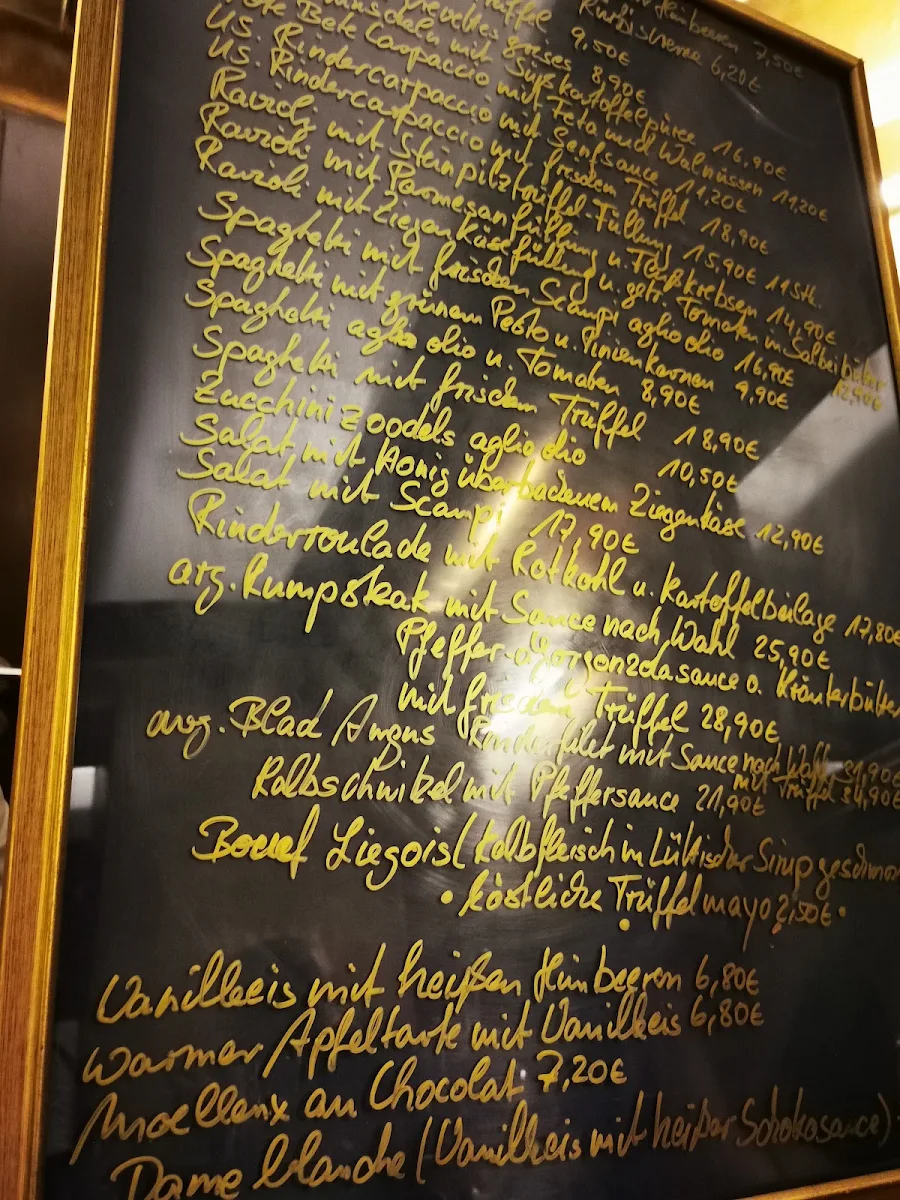 Himbeeren 7,50€
Trüffel Kürbiscreme 6,20€
9,50€
8,90€
mit Süßkartoffelpüree 16,90€
Rote Bete Carpaccio mit Feta und Walnüssen 11,20€
US. Rindercarpaccio mit Senfsauce 11,20€
US. Rindercarpaccio mit frischem Trüffel 18,90€
Ravioli mit Steinpilztrüffel-Füllung 15,90€ 11 Stk.
Ravioli mit Parmesanfüllung u. Flußkrebsen 14,90€
Ravioli mit Ziegenkäsefüllung u. getr. Tomaten in Salbeibutter 12,90€
Spaghetti mit frischen Scampi aglio olio 16,90€
Spaghetti mit grünem Pesto u. Pinienkernen 9,90€
Spaghetti aglio olio u. Tomaten 8,90€
Spaghetti mit frischem Trüffel 18,90€
Zucchinizoodels aglio olio 10,50€
Salat mit Honig überbackenem Ziegenkäse 12,90€
Salat mit Scampi 17,90€
Rinderroulade mit Rotkohl u. Kartoffelbeilage 17,80€
arg. Rumpsteak mit Sauce nach Wahl 25,90€
Pfeffer- o. Gorgonzolasauce o. Kräuterbutter
mit frischem Trüffel 28,90€
arg. Blad Angus Rinderfilet mit Sauce nach Wahl 31,90€
mit Trüffel 34,90€
Kalbschnitzel mit Pfeffersauce 21,90€
Boeuf Liegois (Kalbfleisch in Lüttischer Sirup geschmor
• köstliche Trüffelmayo 2,50€ •
Vanilleeis mit heißen Himbeeren 6,80€
Warmer Apfeltarte mit Vanilleeis 6,80€
Moelleux au Chocolat 7,20€
Dame blanche (Vanilleeis mit heißer Schokosauce)